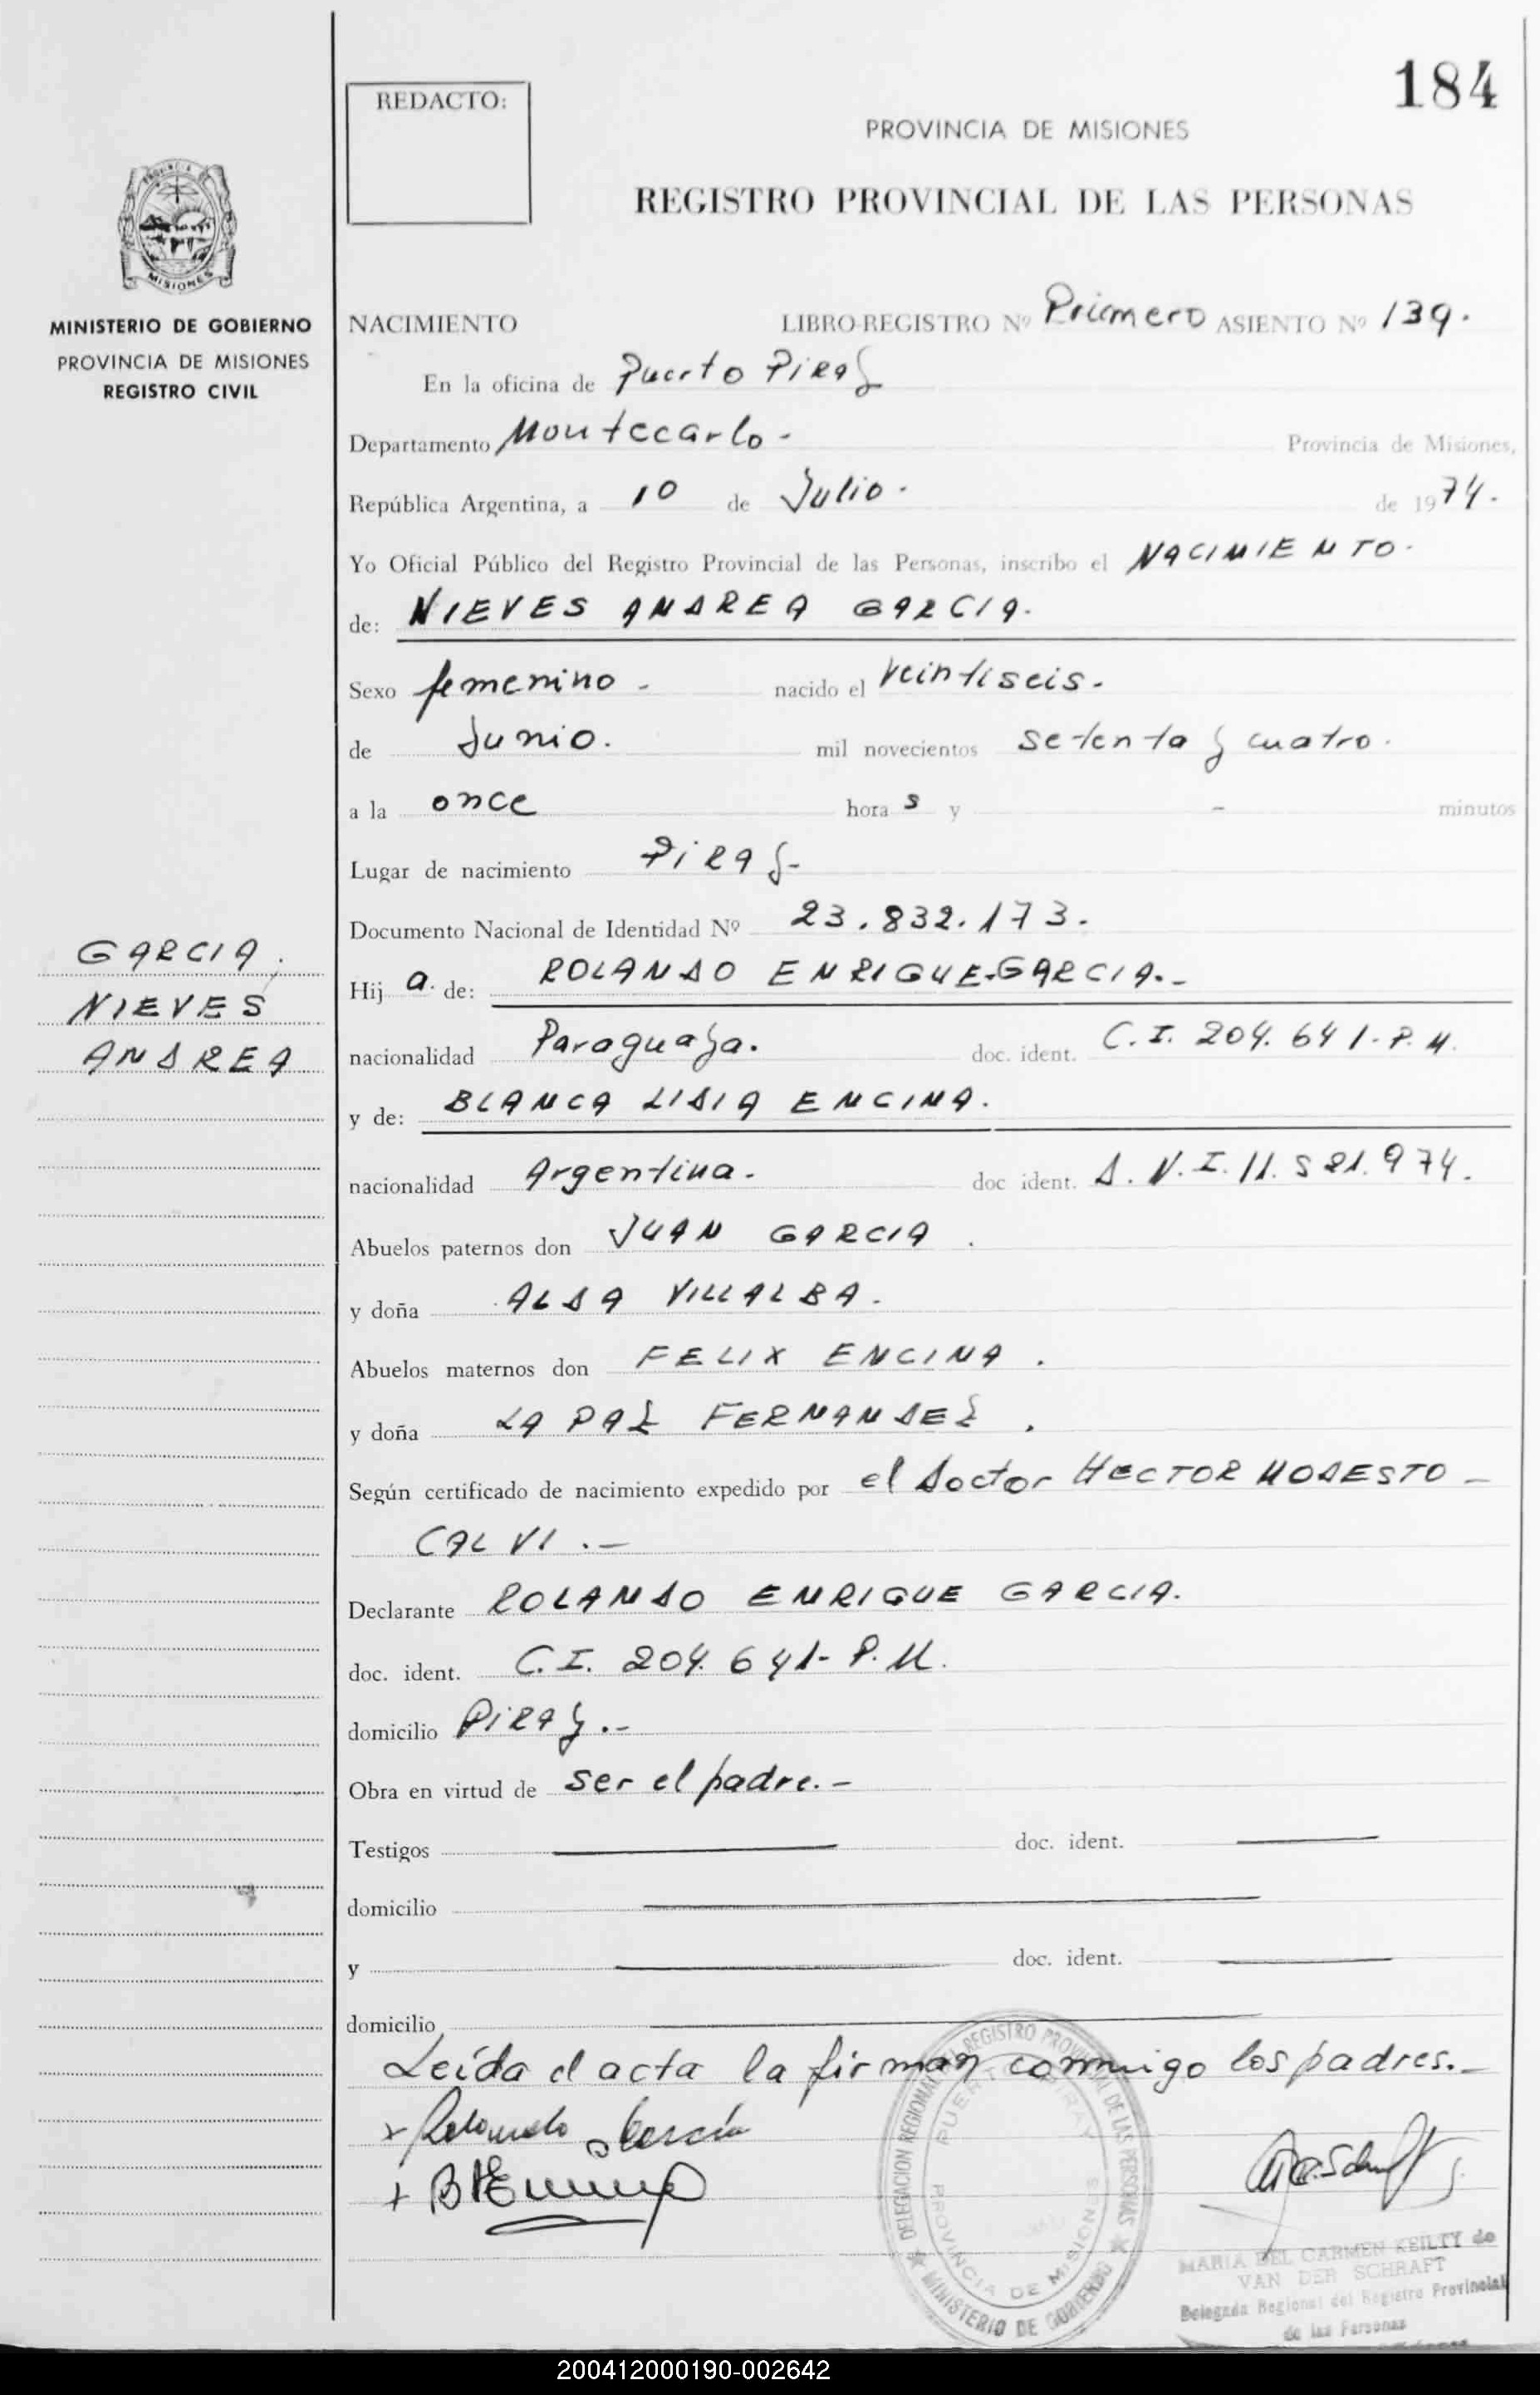 184
REDACTO:
PROVINCIA DE MISIONES
REGISTRO PROVINCIAL DE LAS PERSONAS
PROVINCIA DE
MISIONES
MINISTERIO DE GOBIERNO
PROVINCIA DE MISIONES
REGISTRO CIVIL
NACIMIENTO LIBRO-REGISTRO Nº Primero ASIENTO Nº 139.
En la oficina de Puerto Piray
Departamento Montecarlo - Provincia de Misiones,
República Argentina, a 10 de Julio. de 1974.
Yo Oficial Público del Registro Provincial de las Personas, inscribo el NACIMIENTO.
de: NIEVES ANDREA GARCIA.
Sexo femenino - nacido el veintiseis.
de Junio. mil novecientos setenta y cuatro.
a la once hora s y - minutos
Lugar de nacimiento Piray-
Documento Nacional de Identidad Nº 23.832.173.
GARCIA,
NIEVES
ANDREA
Hij a. de: ROLANDO ENRIQUE-GARCIA.-
nacionalidad Paraguaya. doc. ident. C.I. 204.641-P.M.
y de: BLANCA LIDIA ENCINA.
nacionalidad Argentina. doc ident. D.N.I. 11.521.974.
Abuelos paternos don JUAN GARCIA.
y doña ALDA VILLALBA.
Abuelos maternos don FELIX ENCINA.
y doña LA PAZ FERNANDEZ.
Según certificado de nacimiento expedido por el Doctor HECTOR MODESTO -
CALVI .-
Declarante ROLANDO ENRIQUE GARCIA.
doc. ident. C.I. 204.641- P.M.
domicilio Piray.-
Obra en virtud de ser el padre.-
Testigos doc. ident.
domicilio
y doc. ident.
domicilio
Leída el acta la firman conmigo los padres.-
+ Rolando García
+
DELEGACION REGIONAL DEL REGISTRO PROVINCIAL DE LAS PERSONAS
MINISTERIO DE GOBIERNO
PUERTO PIRAY
PROVINCIA DE MISIONES
MARIA DEL CARMEN KEILTY de
VAN DER SCHRAFT
Delegada Regional del Registro Provincial
de las Personas
200412000190-002642